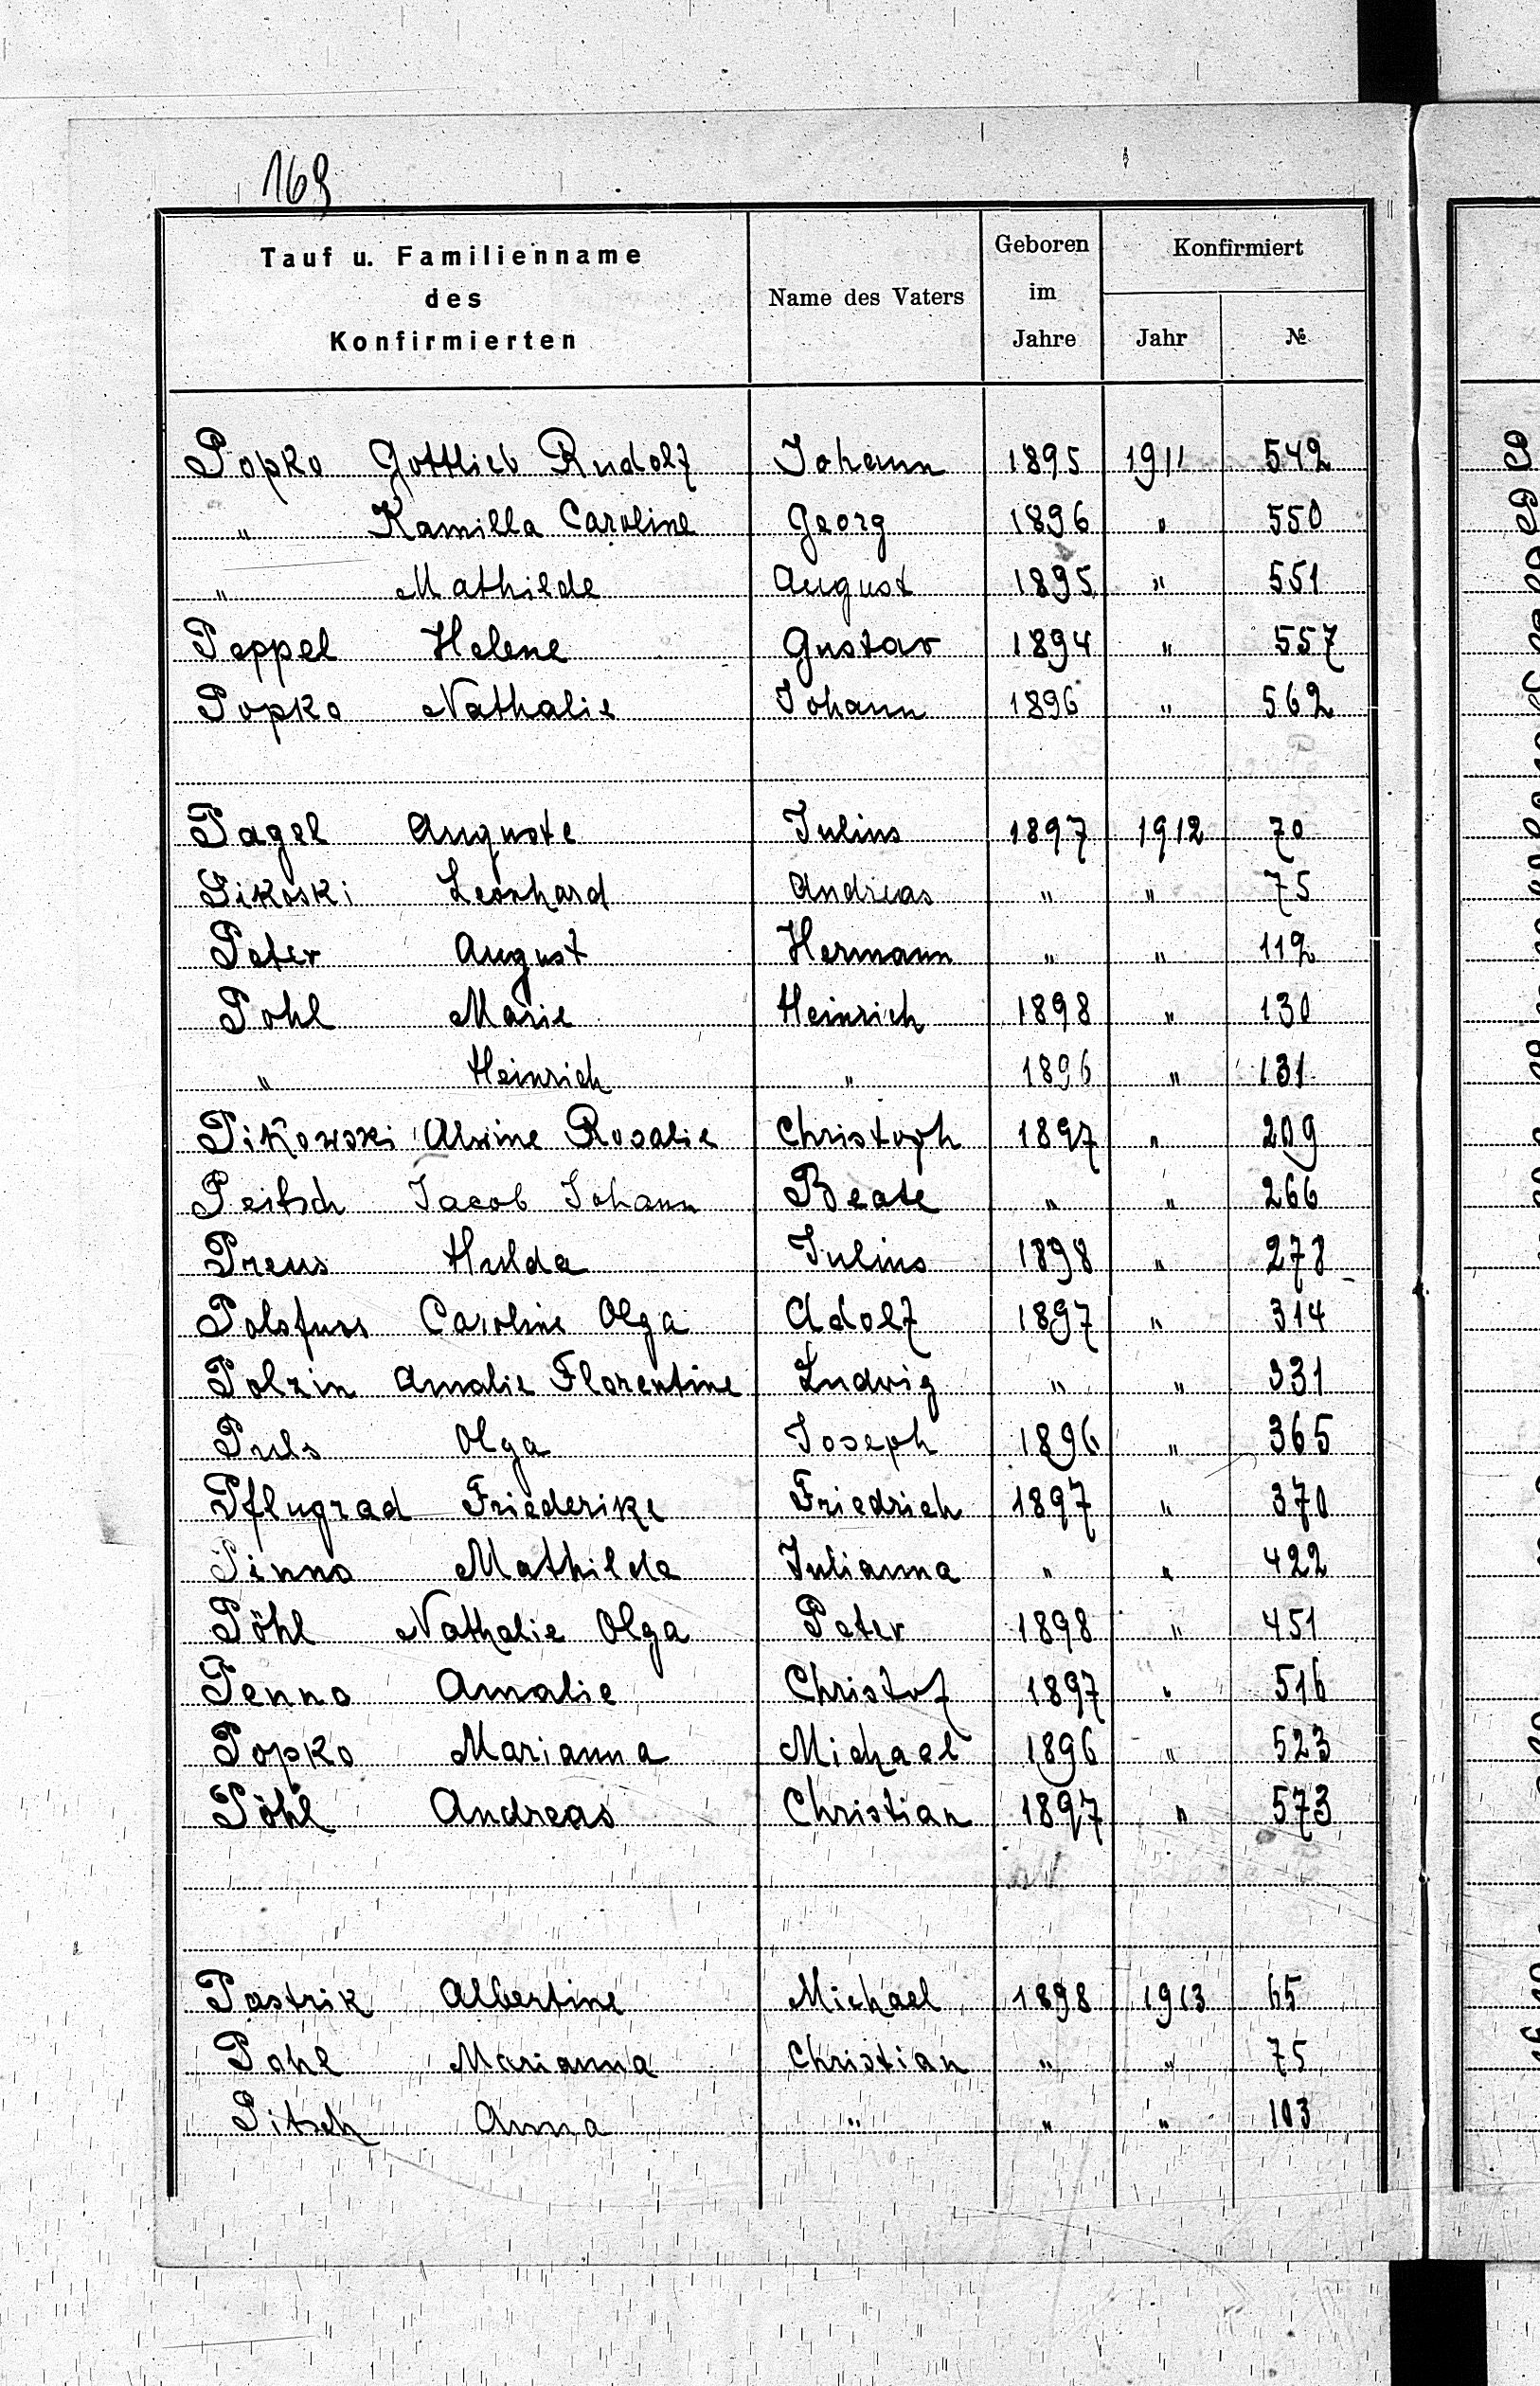 169
Tauf u. Familienname des Konfirmierten | Name des Vaters | Geboren im Jahre | Konfirmiert Jahr | №
Popko Gottlieb Rudolf Johann 1895 1911 542
" Kamilla Caroline Georg 1896 " 550
" Mathilde August 1895 " 551
Peppel Helene Gustav 1894 " 557
Popko Nathalie Johann 1896 " 562
Pagel Auguste Julius 1897 1912 70
Pikoski Leonhard Andreas " " 75
Peter August Hermann " " 112
Pohl Marie Heinrich 1898 " 130
" Heinrich " 1896 " 131
Pikowski Alwine Rosalie Christoph 1897 " 209
Peitsch Jacob Johann Beate " " 266
Preus Hulda Julius 1898 " 278
Polsfuss Caroline Olga Adolf 1897 " 314
Polzin Amalie Florentine Ludwig " " 331
Puls Olga Joseph 1896 " 365
Pflugrad Friederike Friedrich 1897 " 370
Pinno Mathilde Julianna " " 422
Pöhl Nathalie Olga Peter 1898 " 451
Penno Amalie Christof 1897 " 516
Popko Marianna Michael 1896 " 523
Pöhl Andreas Christian 1897 " 573
Pastrik Albertine Michael 1898 1913 65
Pohl Marianna Christian " " 75
Pitsch Anna " " " 103